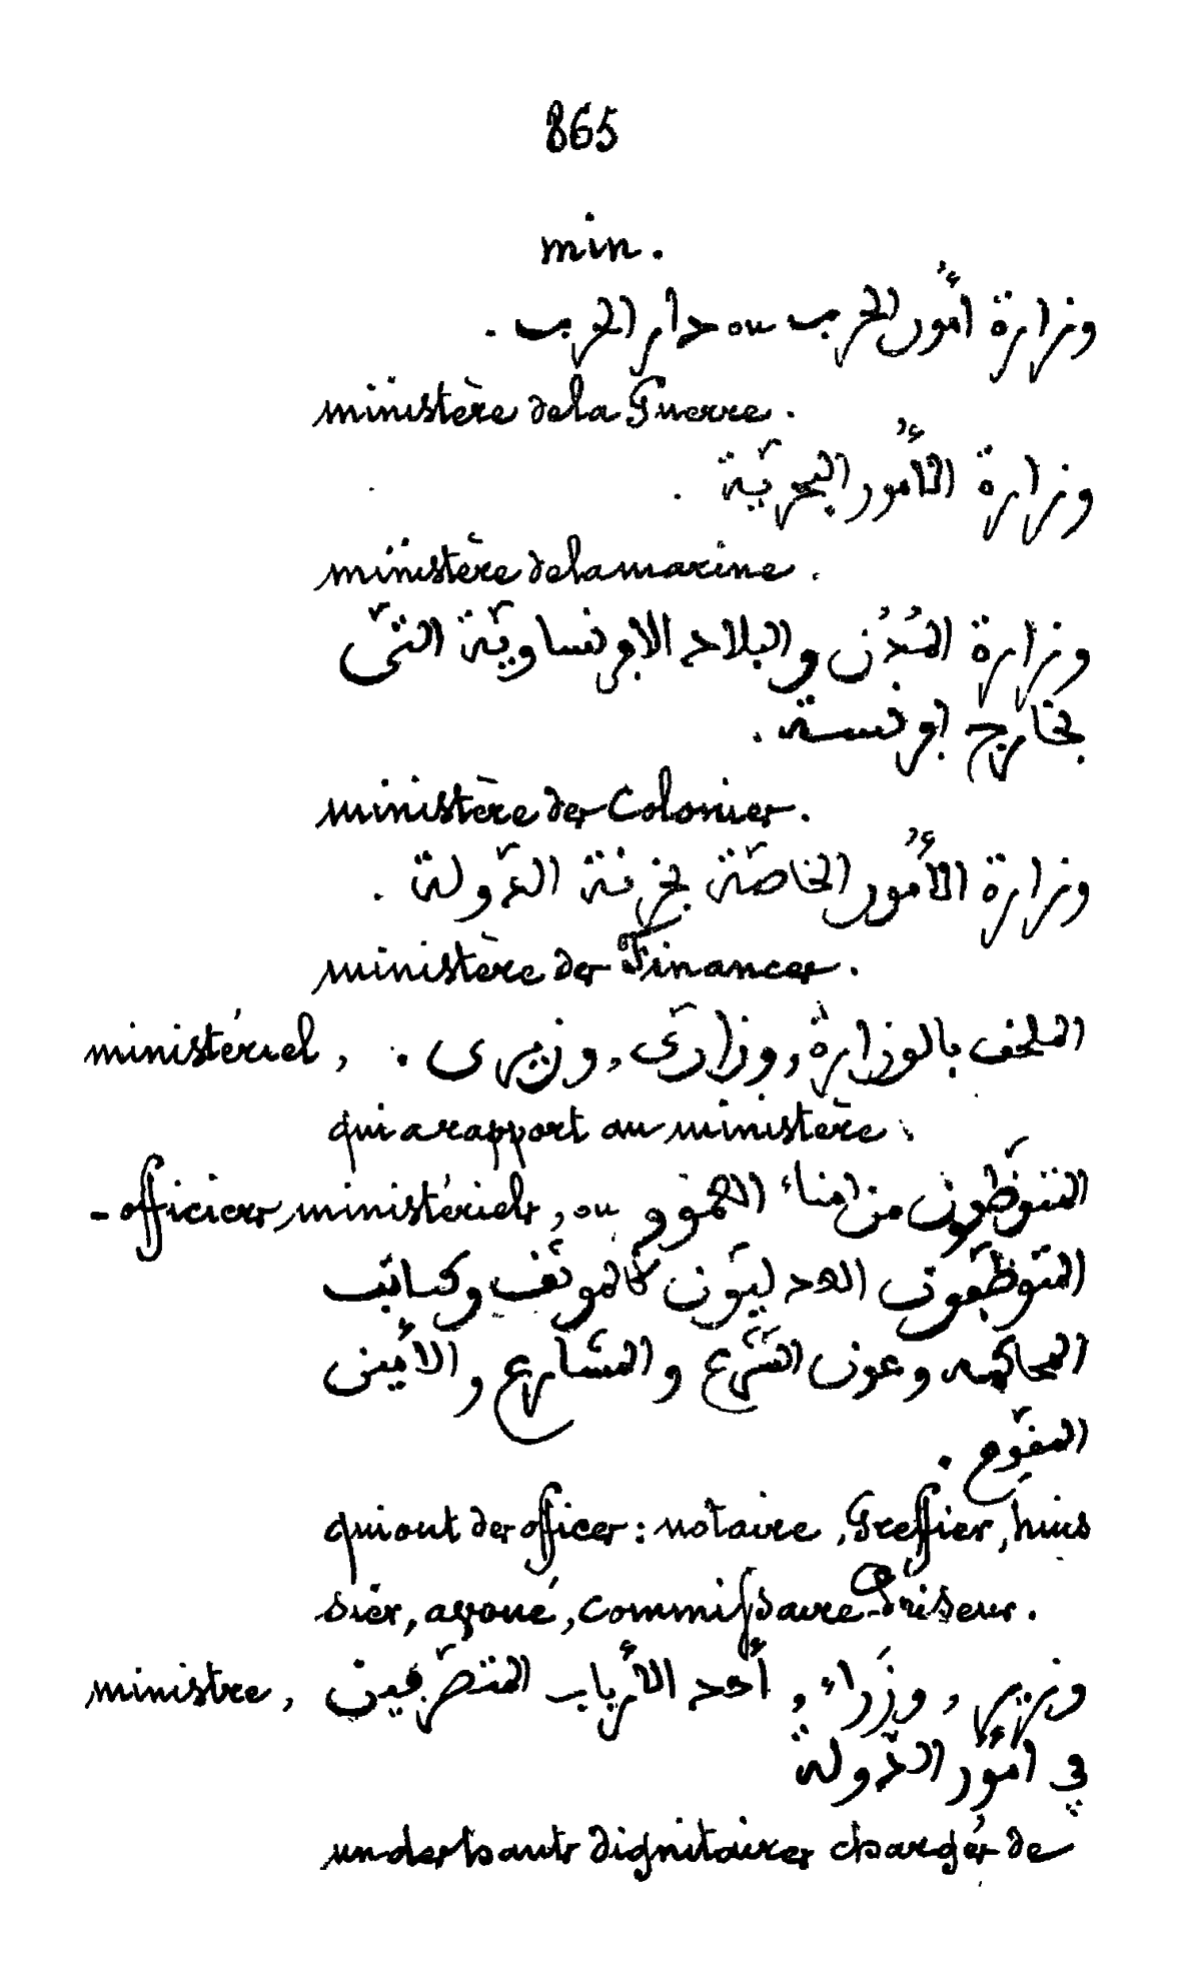 865
min.
وزارة امُور الحرب ou دار الحرب.
ministère de la Guerre.
وزارة الأمُور البحريّة.
ministère de la marine.
وزارة المُدُن والبلاد الافرنساويّة التّى
بخارج افرنسة.
ministère des Colonies.
وزارة الأمُور الخاصّة بخزنة الدّولة.
ministère des Finances.
ministériel, الملحق بالوزارة، وزارىّ، وزيرى.
qui a rapport au ministère.
- officiers ministériels, ou المتوظّفون من امناء
المتوظّفون العدليّون كالموثّق وكاتب
المحاكمه وعون الشّرع والمشارع والأمين
المقوّم.
qui ont des offices: notaire, Greffier, huis
sier, avoué, commissaire-Priseur.
ministre, وزير، وزراء، أحد الأرباب المتصرّفين
في أمُور الدّولة
un des hauts dignitaires chargés de